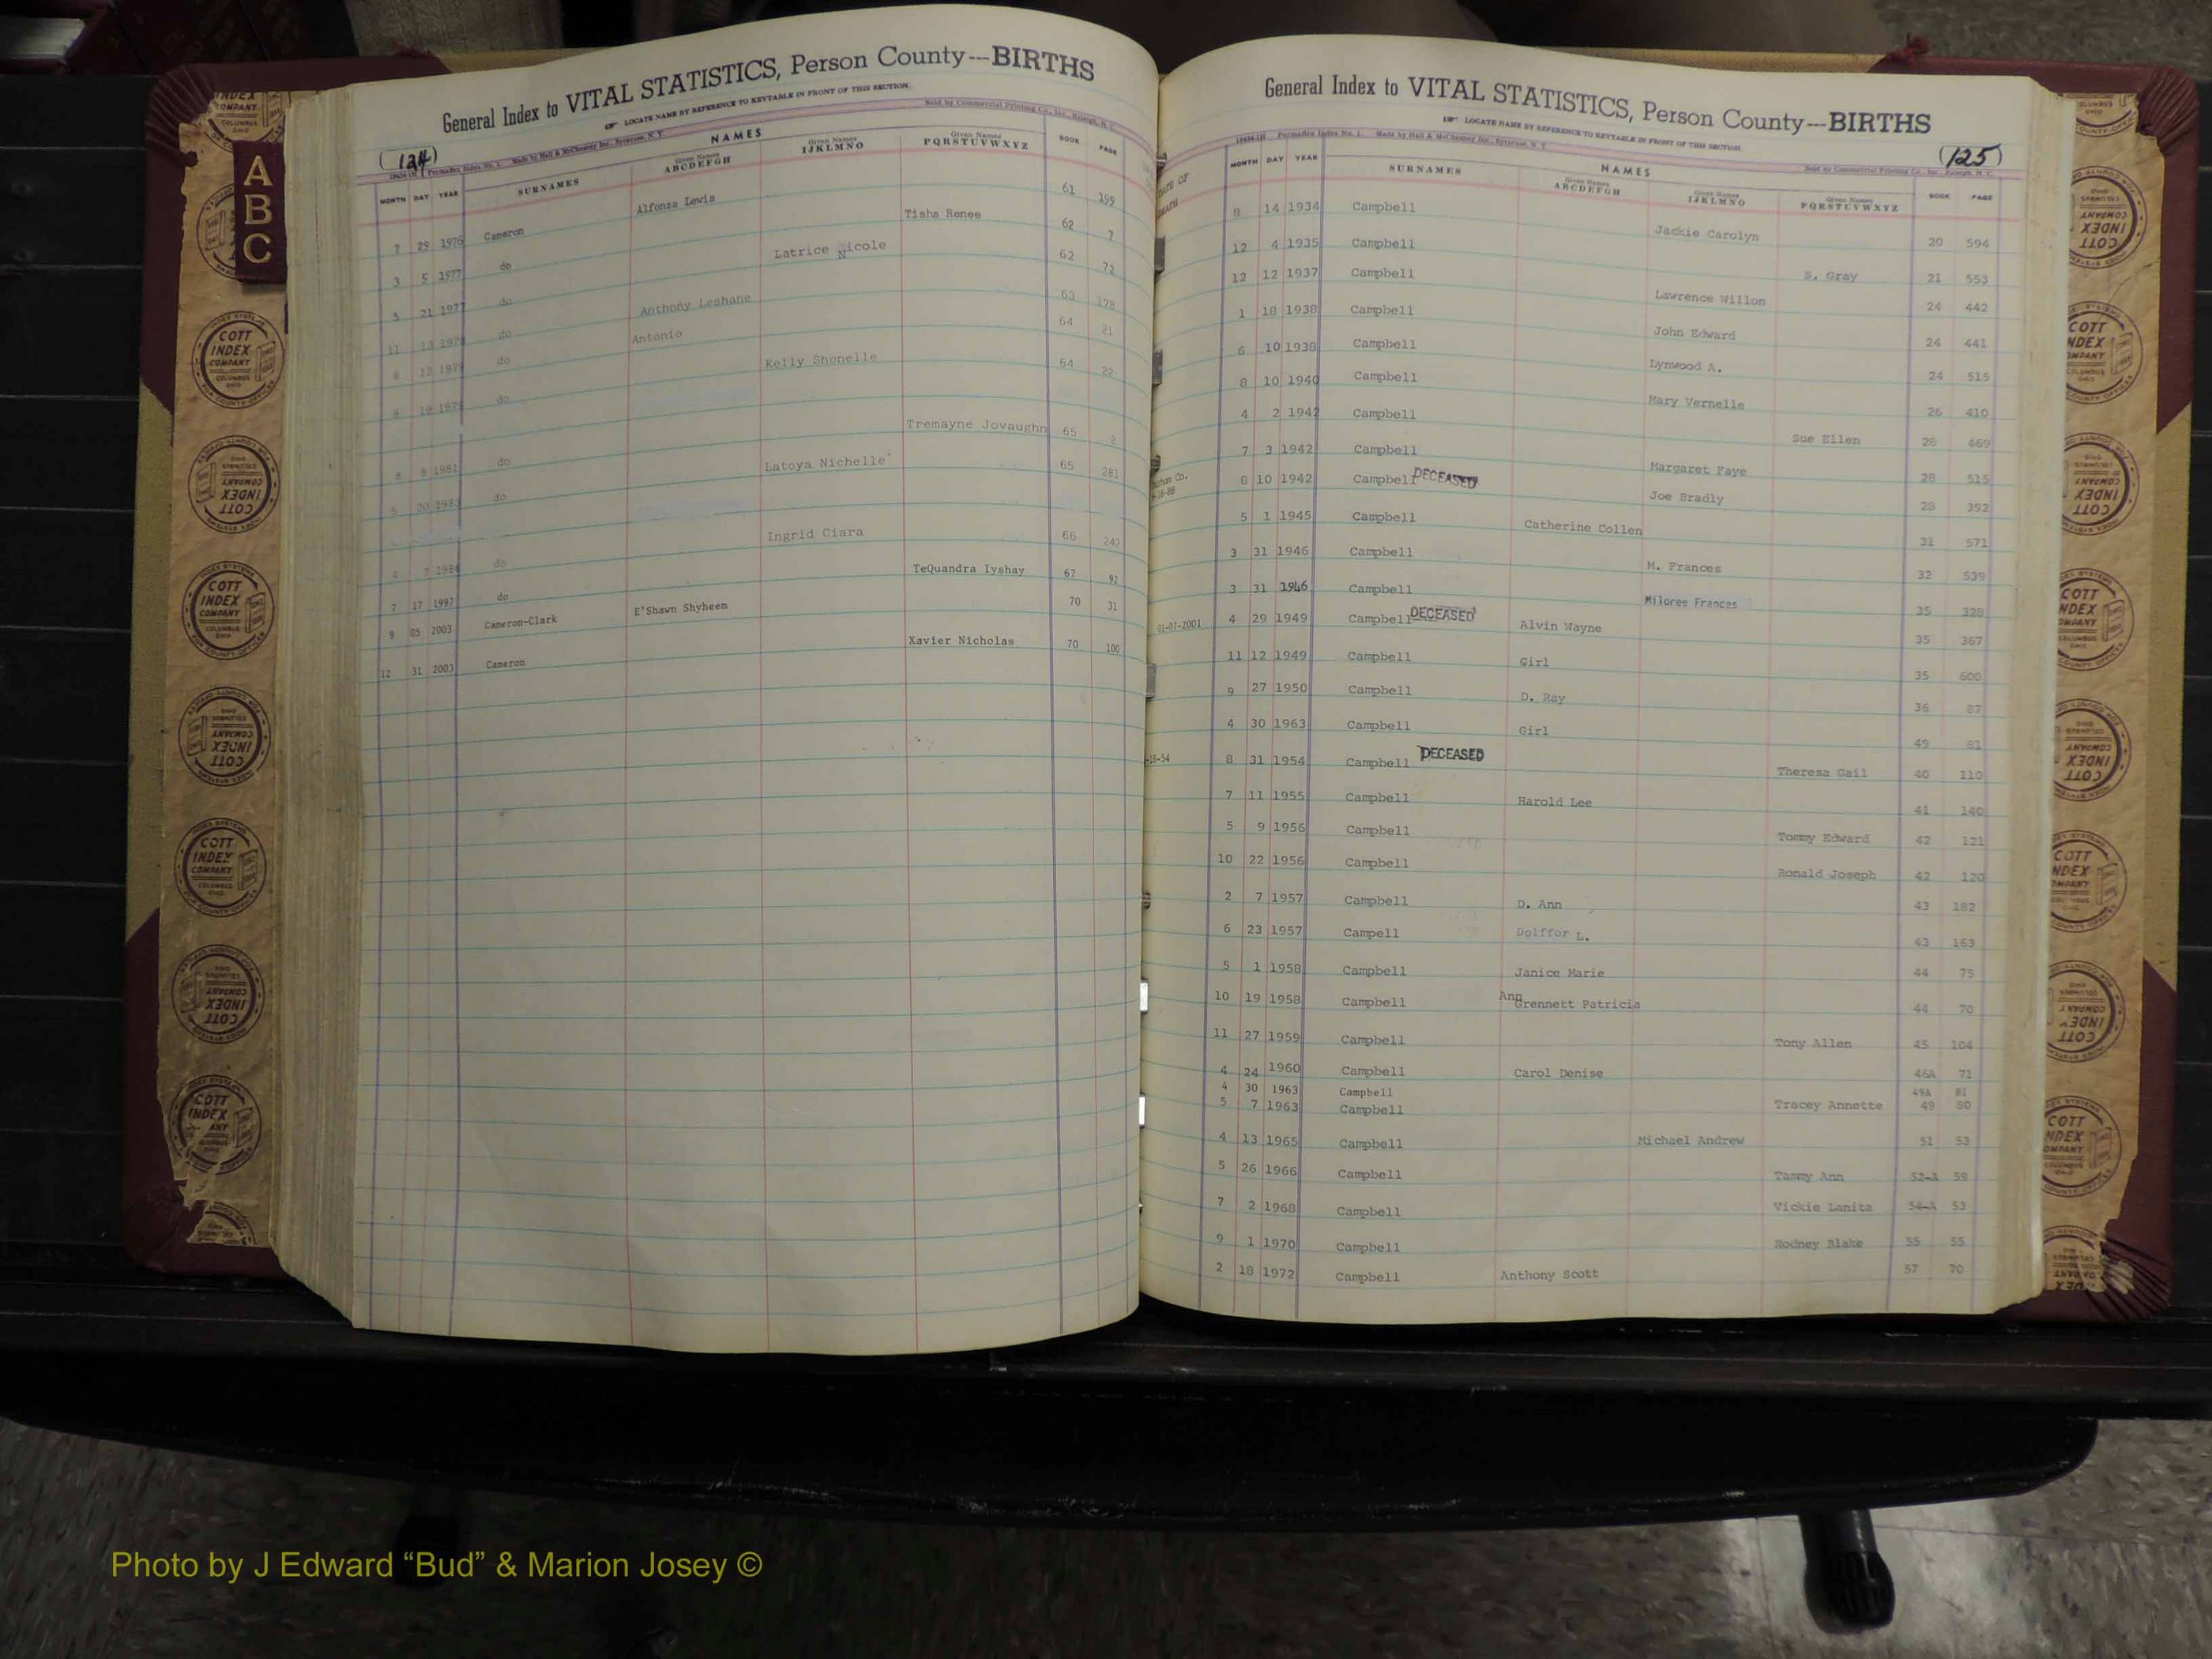 General Index to VITAL STATISTICS, Person County---BIRTHS
LOCATE NAME BY REFERENCE TO KEYTABLE IN FRONT OF THIS SECTION.
(124)
Permaflex Index No. 1. Made by Hall & McChesney Inc., Syracuse, N. Y.
Sold by Commercial Printing Co., Inc., Raleigh, N. C.
NAMES
MONTH DAY YEAR SURNAMES Given Names ABCDEFGH Given Names IJKLMNO Given Names PQRSTUVWXYZ BOOK PAGE
7 29 1976 Cameron Alfonza Lewis 61 199
3 5 1977 do Tisha Renee 62 7
5 21 1977 do Latrice Nicole 62 72
11 13 1978 do Anthony Leshane 63 178
6 12 1979 do Antonio 64 21
8 19 do Kelly Shonelle 64 22
8 8 1981 do Tremayne Jovaughn 65 2
5 20 1983 do Latoya Nichelle 65 281
4 7 1986 do Ingrid Ciara 66 242
7 17 1997 do TeQuandra Iyshay 67 92
9 05 2003 Cameron-Clark E'Shawn Shyheem 70 31
12 31 2003 Cameron Xavier Nicholas 70 100
General Index to VITAL STATISTICS, Person County---BIRTHS
LOCATE NAME BY REFERENCE TO KEYTABLE IN FRONT OF THIS SECTION.
(125)
Permaflex Index No. 1. Made by Hall & McChesney Inc., Syracuse, N. Y.
Sold by Commercial Printing Co., Inc., Raleigh, N. C.
NAMES
MONTH DAY YEAR SURNAMES Given Names ABCDEFGH Given Names IJKLMNO Given Names PQRSTUVWXYZ BOOK PAGE
14 1934 Campbell Jackie Carolyn 20 594
12 4 1935 Campbell S. Gray 21 553
12 12 1937 Campbell Lawrence Willon 24 442
1 18 1938 Campbell John Edward 24 441
6 10 1938 Campbell Lynwood A. 24 515
8 10 1940 Campbell Mary Vernelle 26 410
4 2 1942 Campbell Sue Ellen 28 469
7 3 1942 Campbell Margaret Faye 28 515
8 10 1942 Campbell DECEASED Joe Bradly 28 392
5 1 1945 Campbell Catherine Collen 31 571
3 31 1946 Campbell M. Frances 32 539
3 31 1946 Campbell Miloree Frances 35 328
01-07-2001 4 29 1949 Campbell DECEASED Alvin Wayne 35 367
11 12 1949 Campbell Girl 35 600
9 27 1950 Campbell D. Ray 36 87
4 30 1963 Campbell Girl 49 81
-18-54 8 31 1954 Campbell DECEASED Theresa Gail 40 110
7 11 1955 Campbell Harold Lee 41 140
5 9 1956 Campbell Tommy Edward 42 121
10 22 1956 Campbell Ronald Joseph 42 120
2 7 1957 Campbell D. Ann 43 182
6 23 1957 Campell Dolffor L. 43 163
5 1 1958 Campbell Janice Marie 44 75
10 19 1958 Campbell Ann Grennett Patricia 44 70
11 27 1959 Campbell Tony Allen 45 104
4 24 1960 Campbell Carol Denise 46A 71
4 30 1963 Campbell 49A 81
5 7 1963 Campbell Tracey Annette 49 80
4 13 1965 Campbell Michael Andrew 51 53
5 26 1966 Campbell Tammy Ann 52-A 59
7 2 1968 Campbell Vickie Lanita 54-A 53
9 1 1970 Campbell Rodney Blake 55 55
2 18 1972 Campbell Anthony Scott 57 70
A
B
C
COTT INDEX COMPANY COLUMBUS OHIO
Photo by J Edward “Bud” & Marion Josey ©